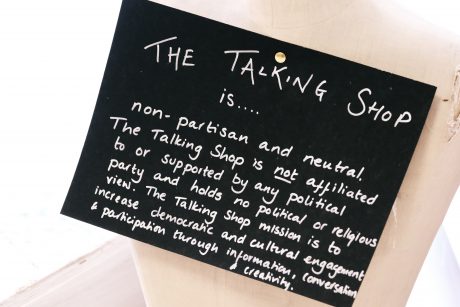 THE TALKING SHOP
is....
non-partisan and neutral.
The Talking Shop is not affiliated
to or supported by any political
party and holds no political or religious
view. The Talking Shop mission is to
increase democratic and cultural engagement
& participation through information, conversation
& creativity.